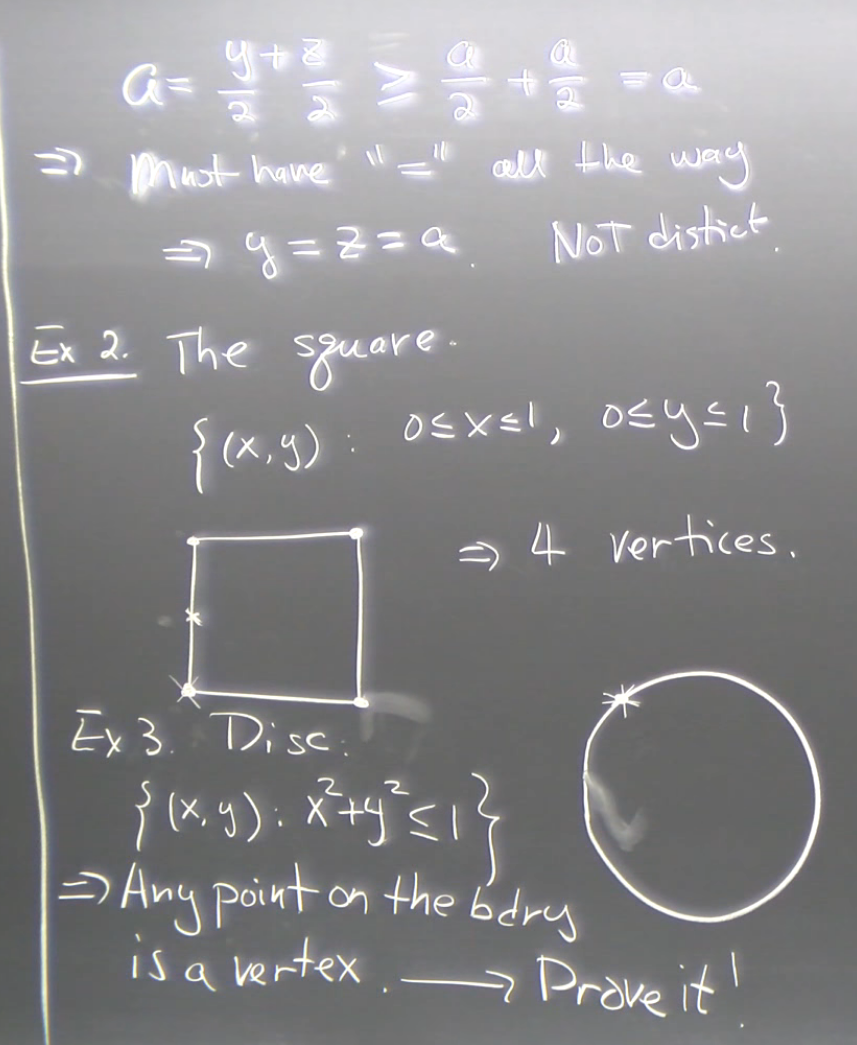 a = y/2 + z/2 ≥ a/2 + a/2 = a
⇒ Must have "=" all the way
⇒ y = z = a. NOT distict.
Ex 2. The square.
{(x,y) : 0≤x≤1, 0≤y≤1}
⇒ 4 vertices.
Ex 3. Disc.
{(x,y) : x²+y²≤1}
⇒ Any point on the bdry
is a vertex. ⟶ Prove it!